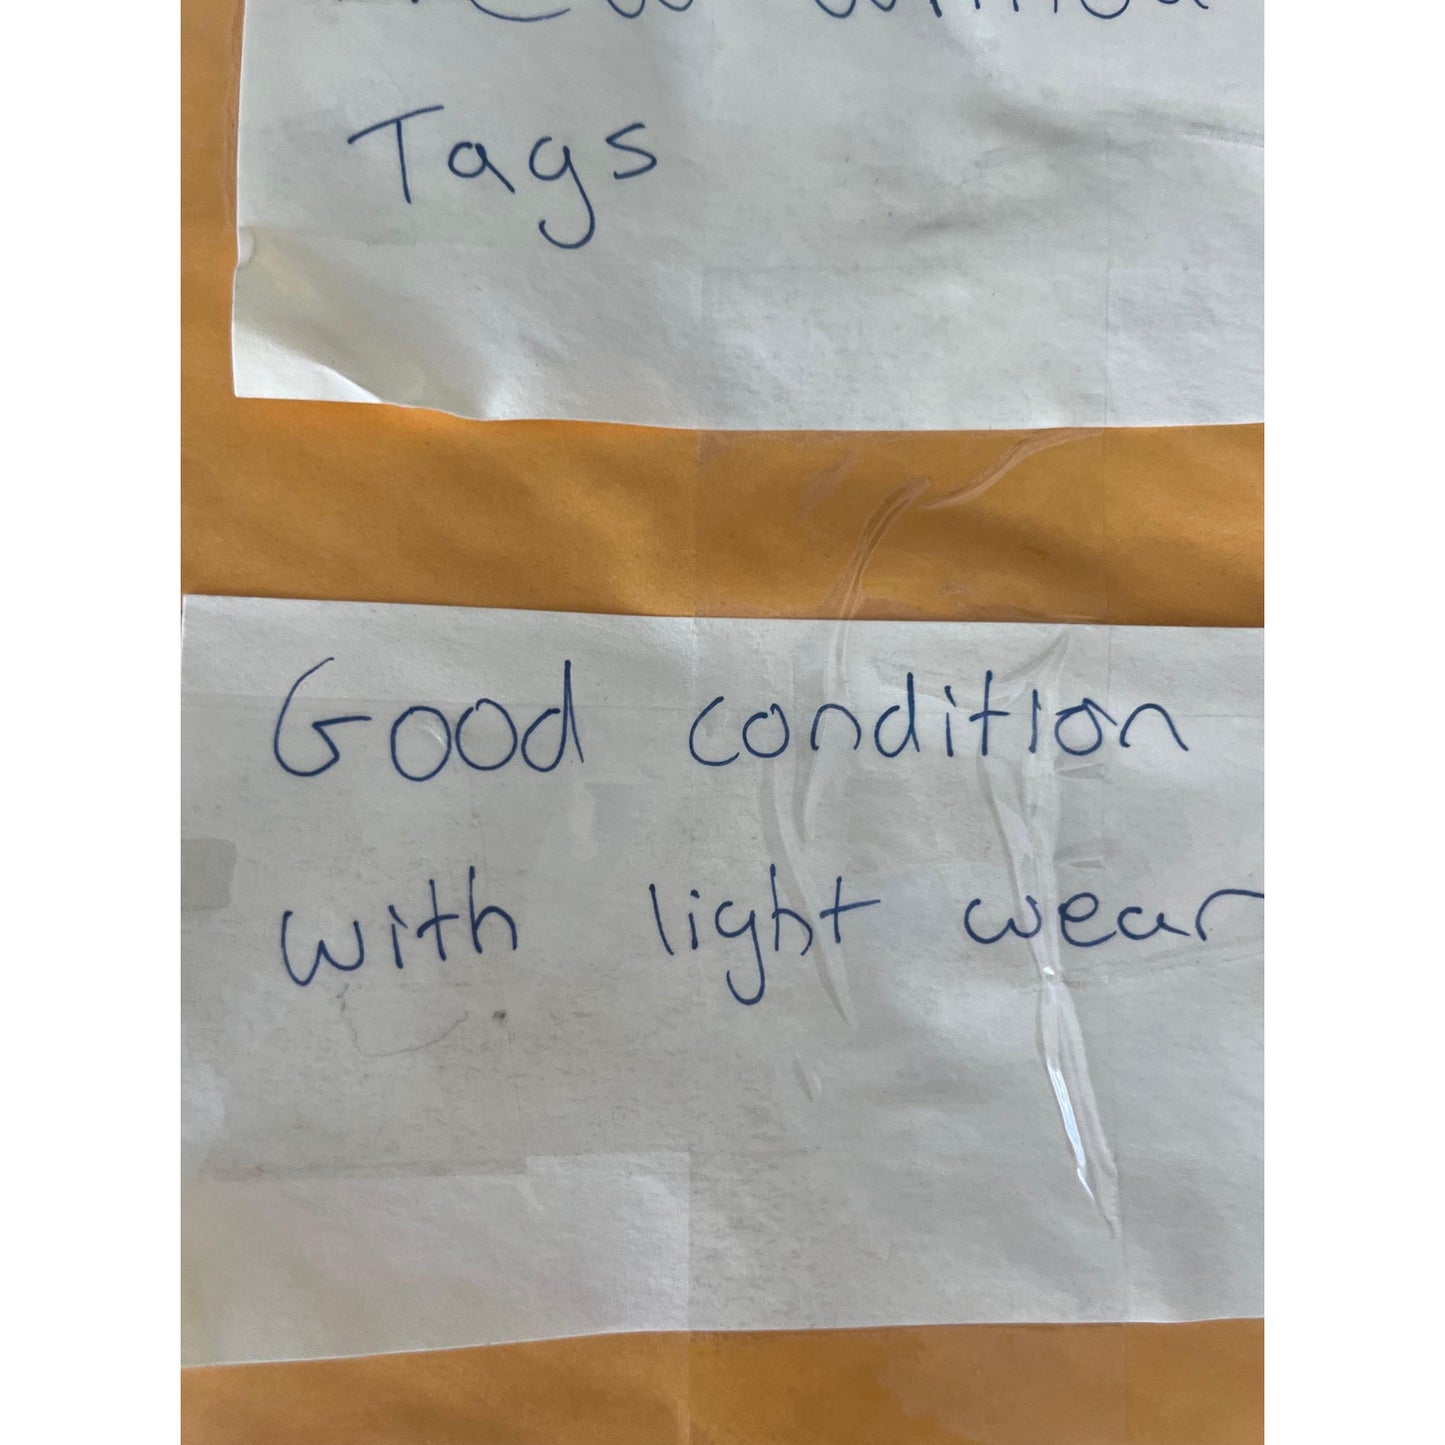 Tags
Good condition
with light wear